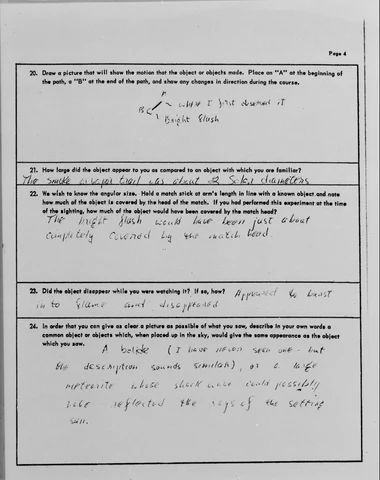 Page 4
20. Draw a picture that will show the motion that the object or objects made. Place an "A" at the beginning of
the path, a "B" at the end of the path, and show any changes in direction during the course.
A
where I first observed it
B
Bright flash
21. How large did the object appear to you as compared to an object with which you are familiar?
The smoke or vapor trail was about 2 Solar diameters
22. We wish to know the angular size. Hold a match stick at arm's length in line with a known object and note
how much of the object is covered by the head of the match. If you had performed this experiment at the time
of the sighting, how much of the object would have been covered by the match head?
The bright flash would have been just about
completely covered by the match head.
23. Did the object disappear while you were watching it? If so, how? Appeared to burst
in to flame and disappeared
24. In order that you can give as clear a picture as possible of what you saw, describe in your own words a
common object or objects which, when placed up in the sky, would give the same appearance as the object
which you saw.
A bolide (I have never seen one - but
the description sounds similar), or a large
meteorite whose shock wave could possibly
have reflected the rays of the setting
sun.